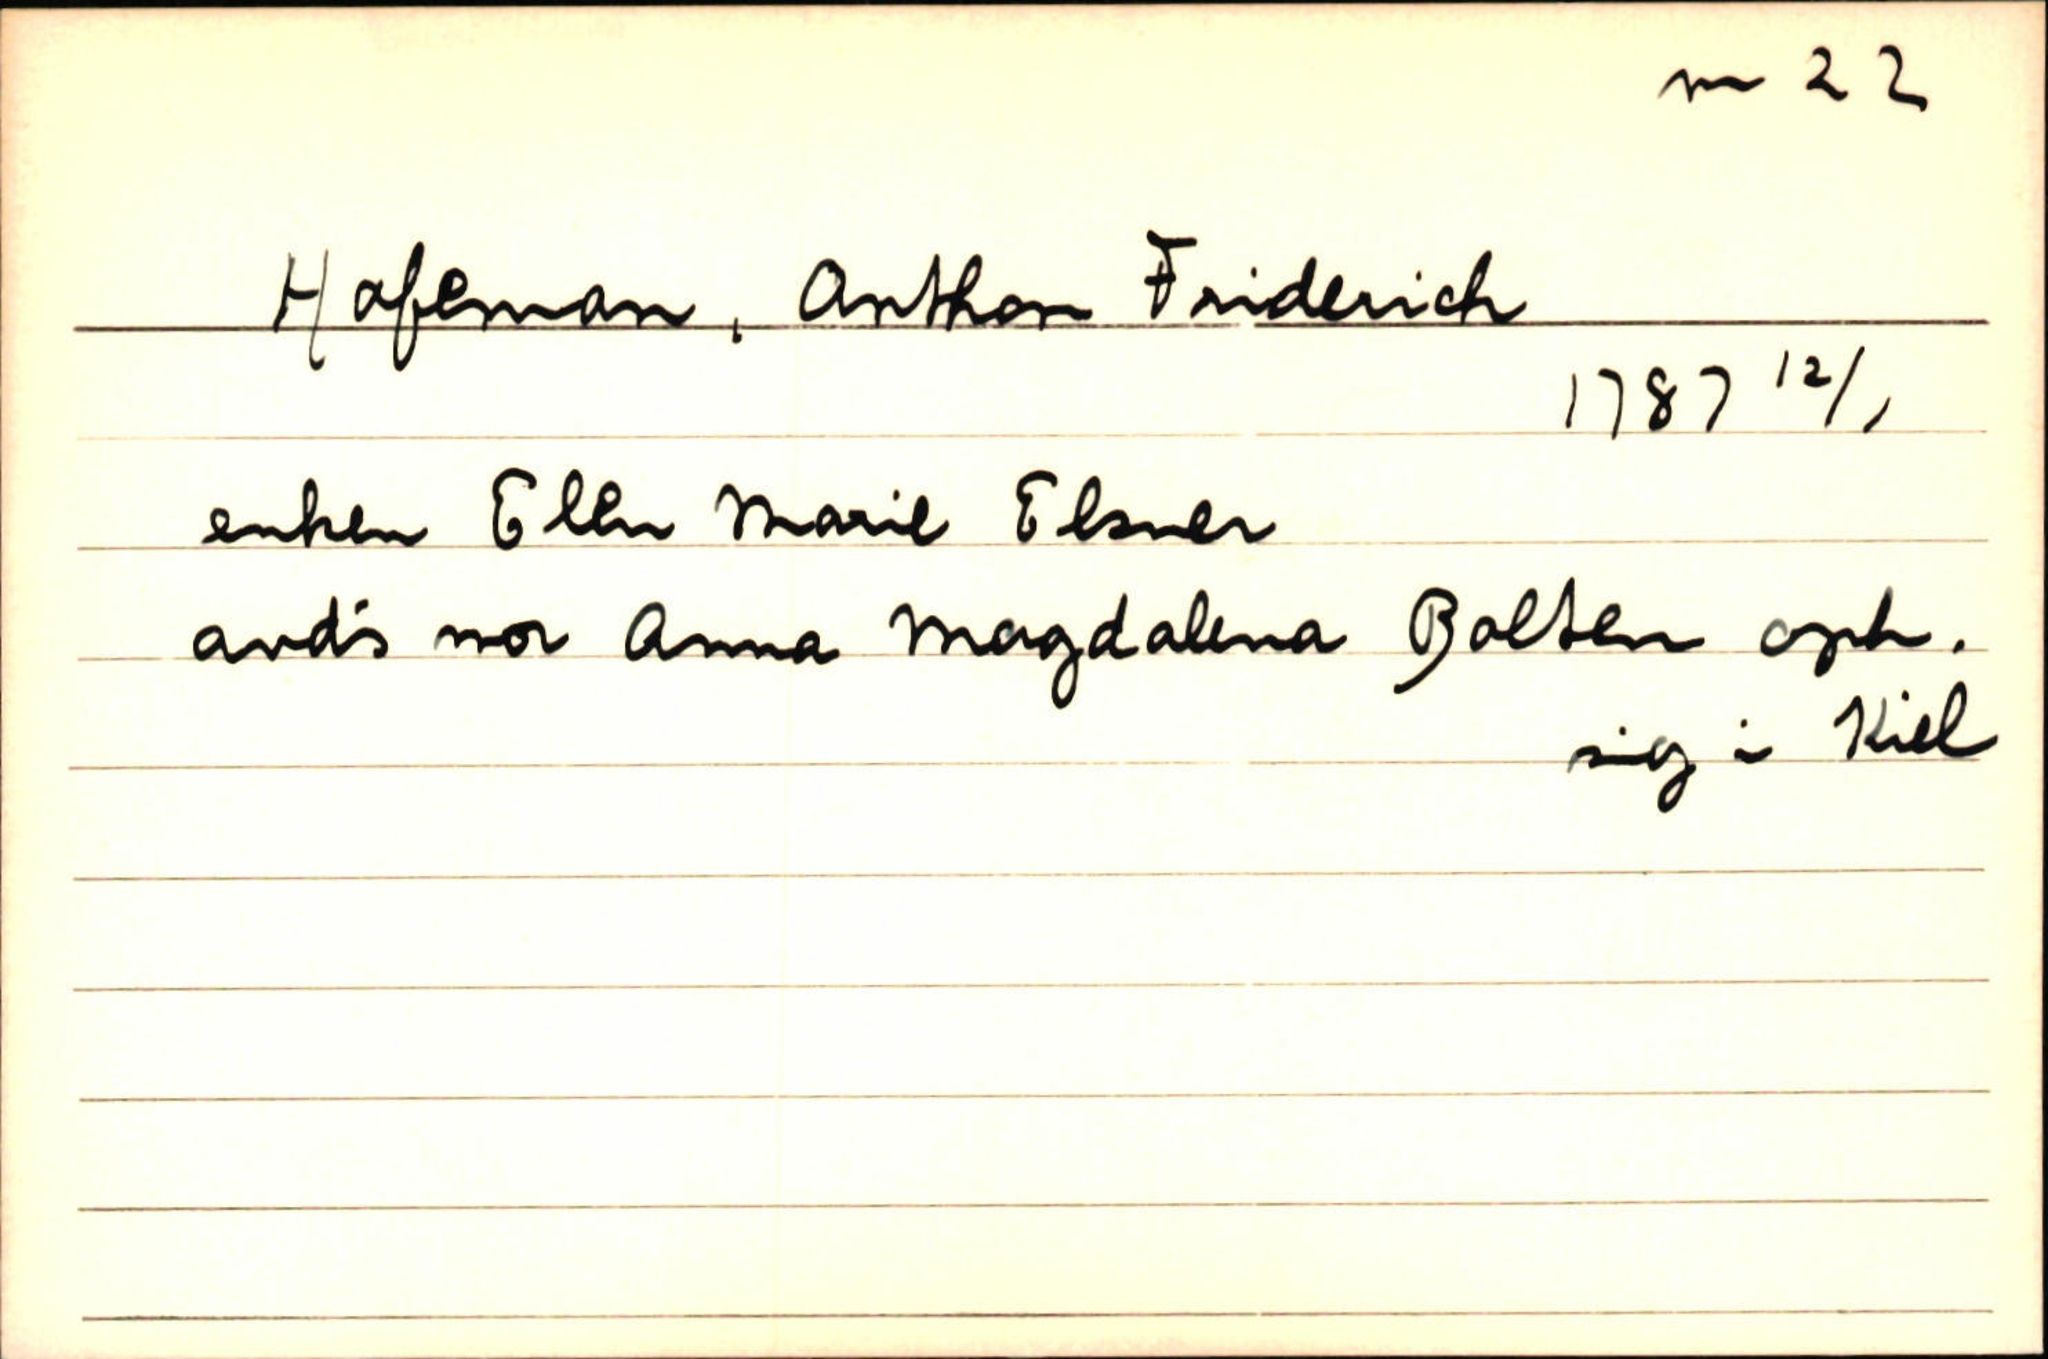 m 22
Hafeman, Anthon Friderich
1787 12/1
enken Ellen Marie Elsner
avd's mor Anna Magdalena Bolten oph.
sig i Kiel